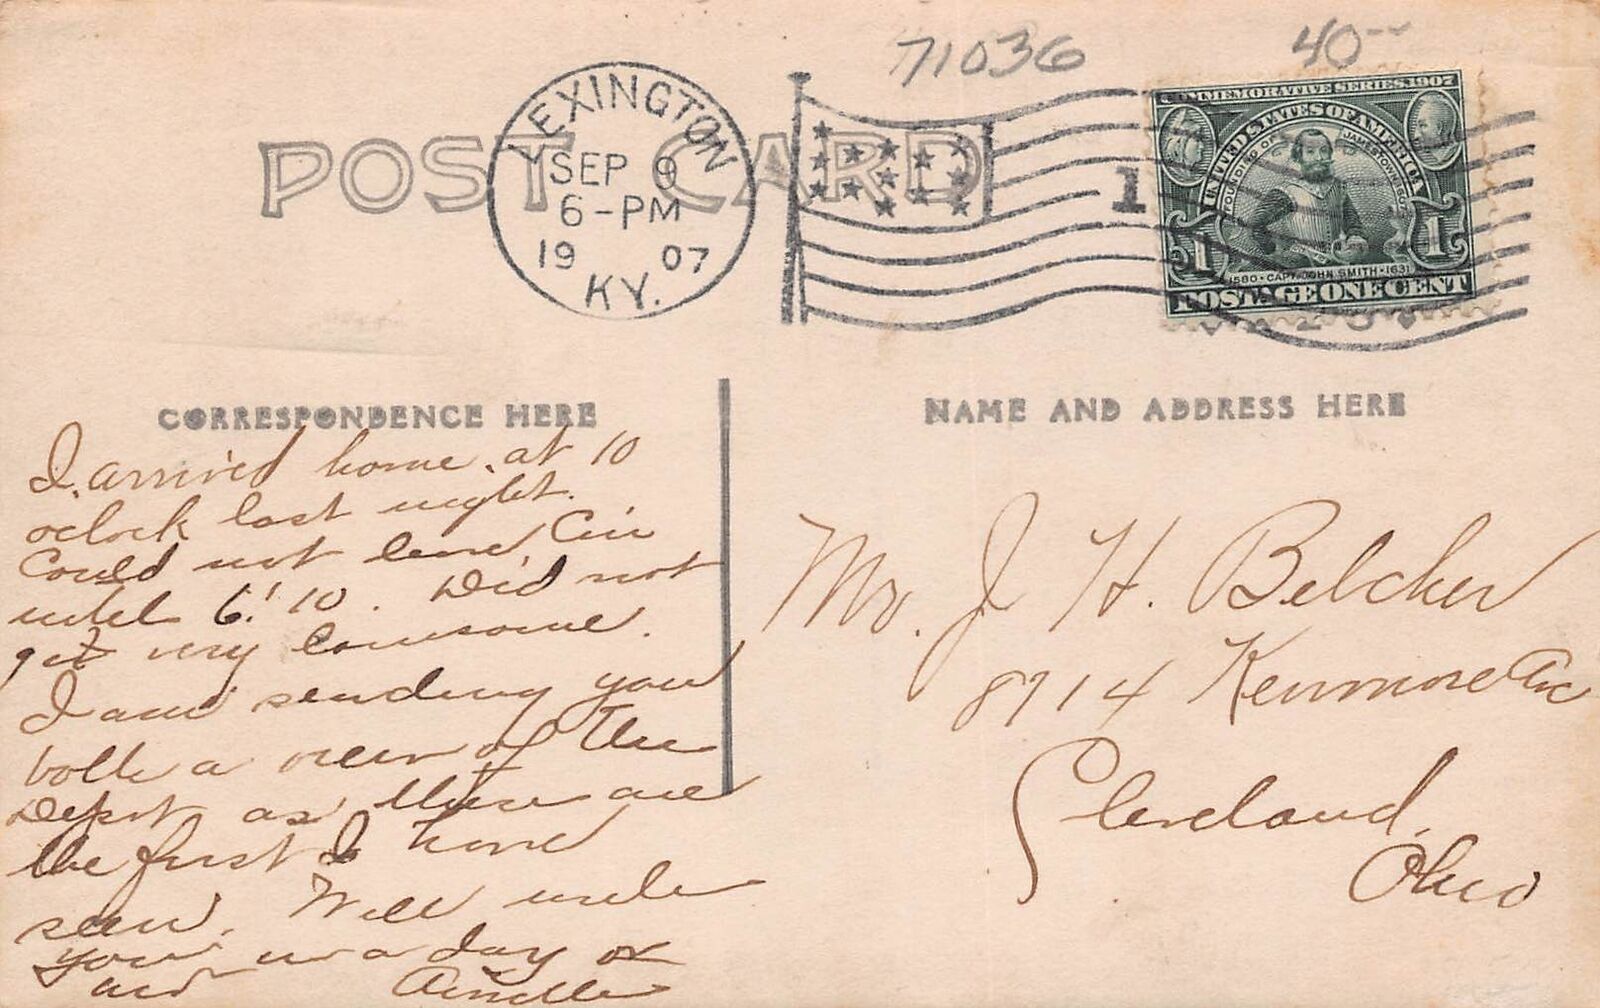 71036
40--
POST CARD
LEXINGTON
SEP 9
6-PM
19 07
KY.
1
COMMEMORATIVE SERIES 1907
UNITED STATES OF AMERICA
FOUNDING OF JAMESTOWN 1607
1 1
1580 · CAPT. JOHN SMITH · 1631
POSTAGE ONE CENT
CORRESPONDENCE HERE
NAME AND ADDRESS HERE
I arrived home at 10
oclock last night.
Could not leave Cin
until 6:10. Did not
get very lonesome.
I am sending you
both a view of the
Depot as these are
the first I have
seen. Will write
you in a day or
Mr. J. H. Belcher
8714 Kenmore Ave
Cleveland,
Ohio